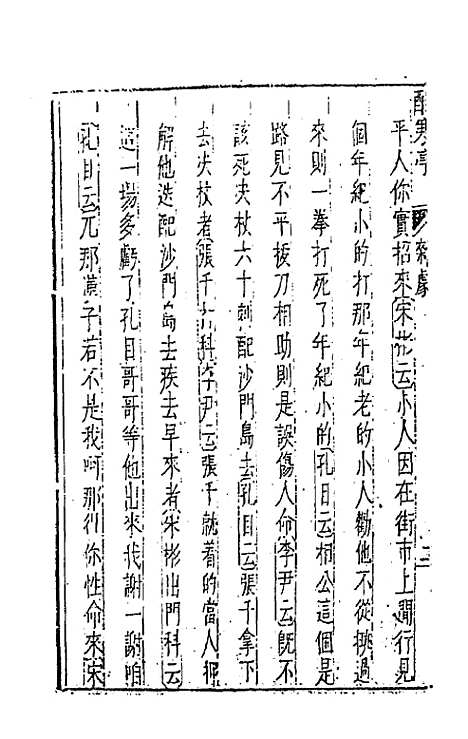 酷寒亭 雜劇 二
平人你實招來宋彬云小人因在街市上閒行見
個年紀小的打那年紀老的小人勸他不從挑過
來則一拳打死了年紀小的孔目云相公這個是
路見不平拔刀相助則是誤傷人命李尹云旣不
該死決杖六十刺配沙門島去孔目云張千拿下
去决杖者張千打科李尹云張千就着的當人押
解他迭配沙門島去疾去早來者宋彬出門科云
這一場多虧了孔目哥哥等他出來我謝一謝咱
孔目云兀那漢子若不是我呵那得你性命來宋